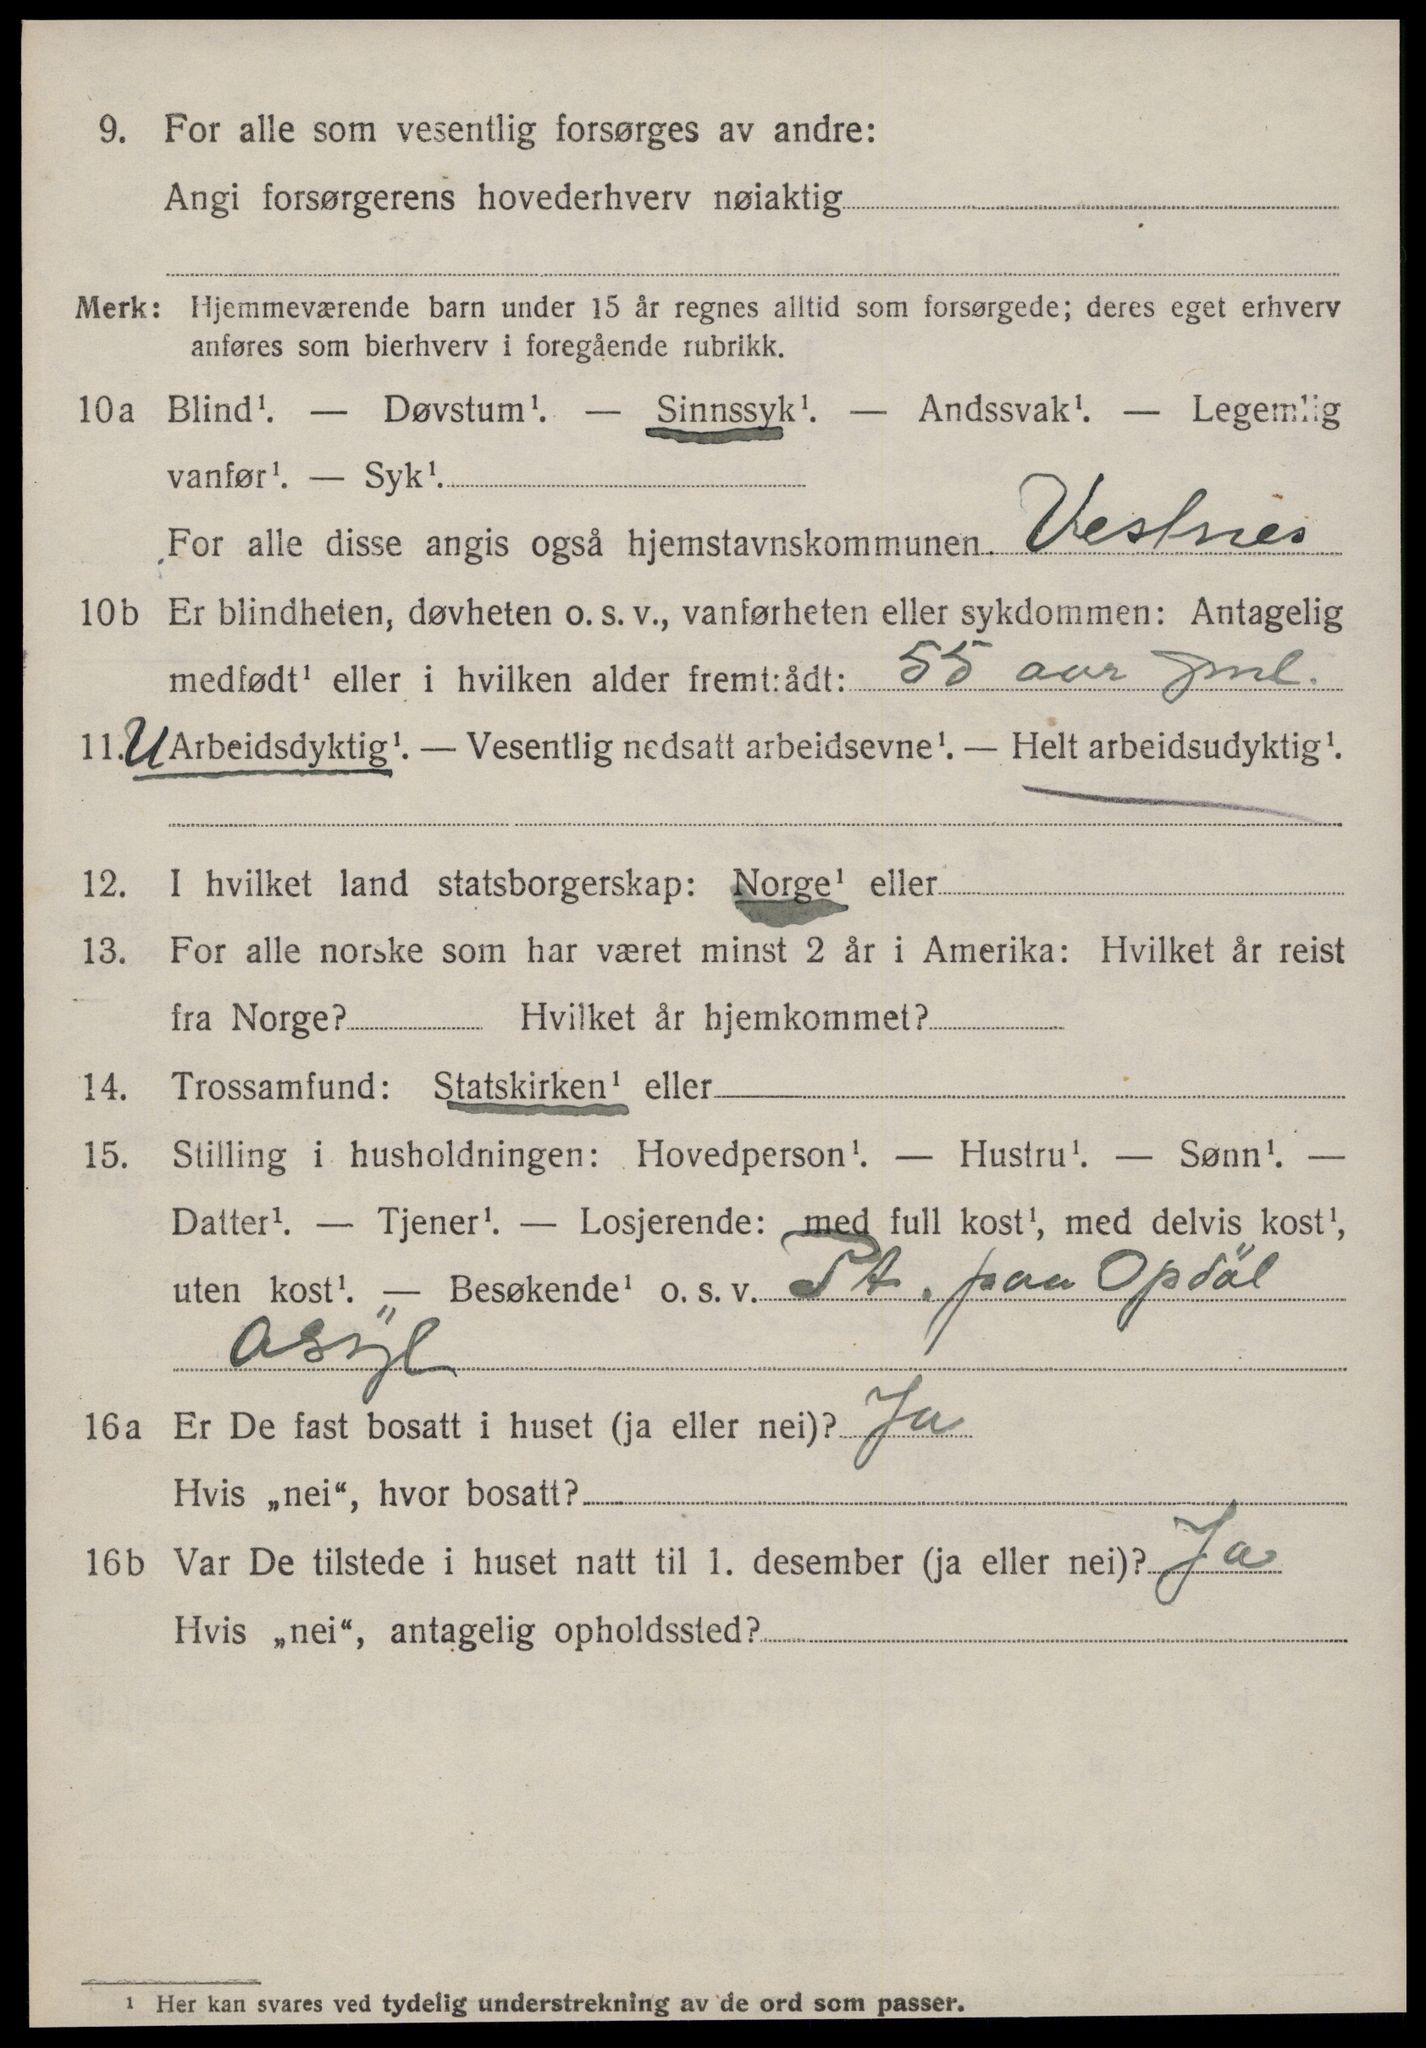 9. For alle som vesentlig forsørges av andre:
Angi forsørgerens hovederhverv nøiaktig
Merk: Hjemmeværende barn under 15 år regnes alltid som forsørgede; deres eget erhverv
anføres som bierhverv i foregående rubrikk.
10a Blind¹. — Døvstum¹. — Sinnssyk¹. — Andssvak¹. — Legemlig
vanfør¹. — Syk¹.
For alle disse angis også hjemstavnskommunen. Vestnes
10b Er blindheten, døvheten o. s. v., vanførheten eller sykdommen: Antagelig
medfødt¹ eller i hvilken alder fremtrådt: 55 aar gml.
11. U Arbeidsdyktig¹. — Vesentlig nedsatt arbeidsevne¹. — Helt arbeidsudyktig¹.
12. I hvilket land statsborgerskap: Norge¹ eller
13. For alle norske som har været minst 2 år i Amerika: Hvilket år reist
fra Norge? Hvilket år hjemkommet?
14. Trossamfund: Statskirken¹ eller
15. Stilling i husholdningen: Hovedperson¹. — Hustru¹. — Sønn¹. —
Datter¹. — Tjener¹. — Losjerende: med full kost¹, med delvis kost¹,
uten kost¹. — Besøkende¹ o. s. v. Pt. paa Opdöl
asyl
16a Er De fast bosatt i huset (ja eller nei)? Ja
Hvis „nei“, hvor bosatt?
16b Var De tilstede i huset natt til 1. desember (ja eller nei)? Ja
Hvis „nei“, antagelig opholdssted?
¹ Her kan svares ved tydelig understrekning av de ord som passer.